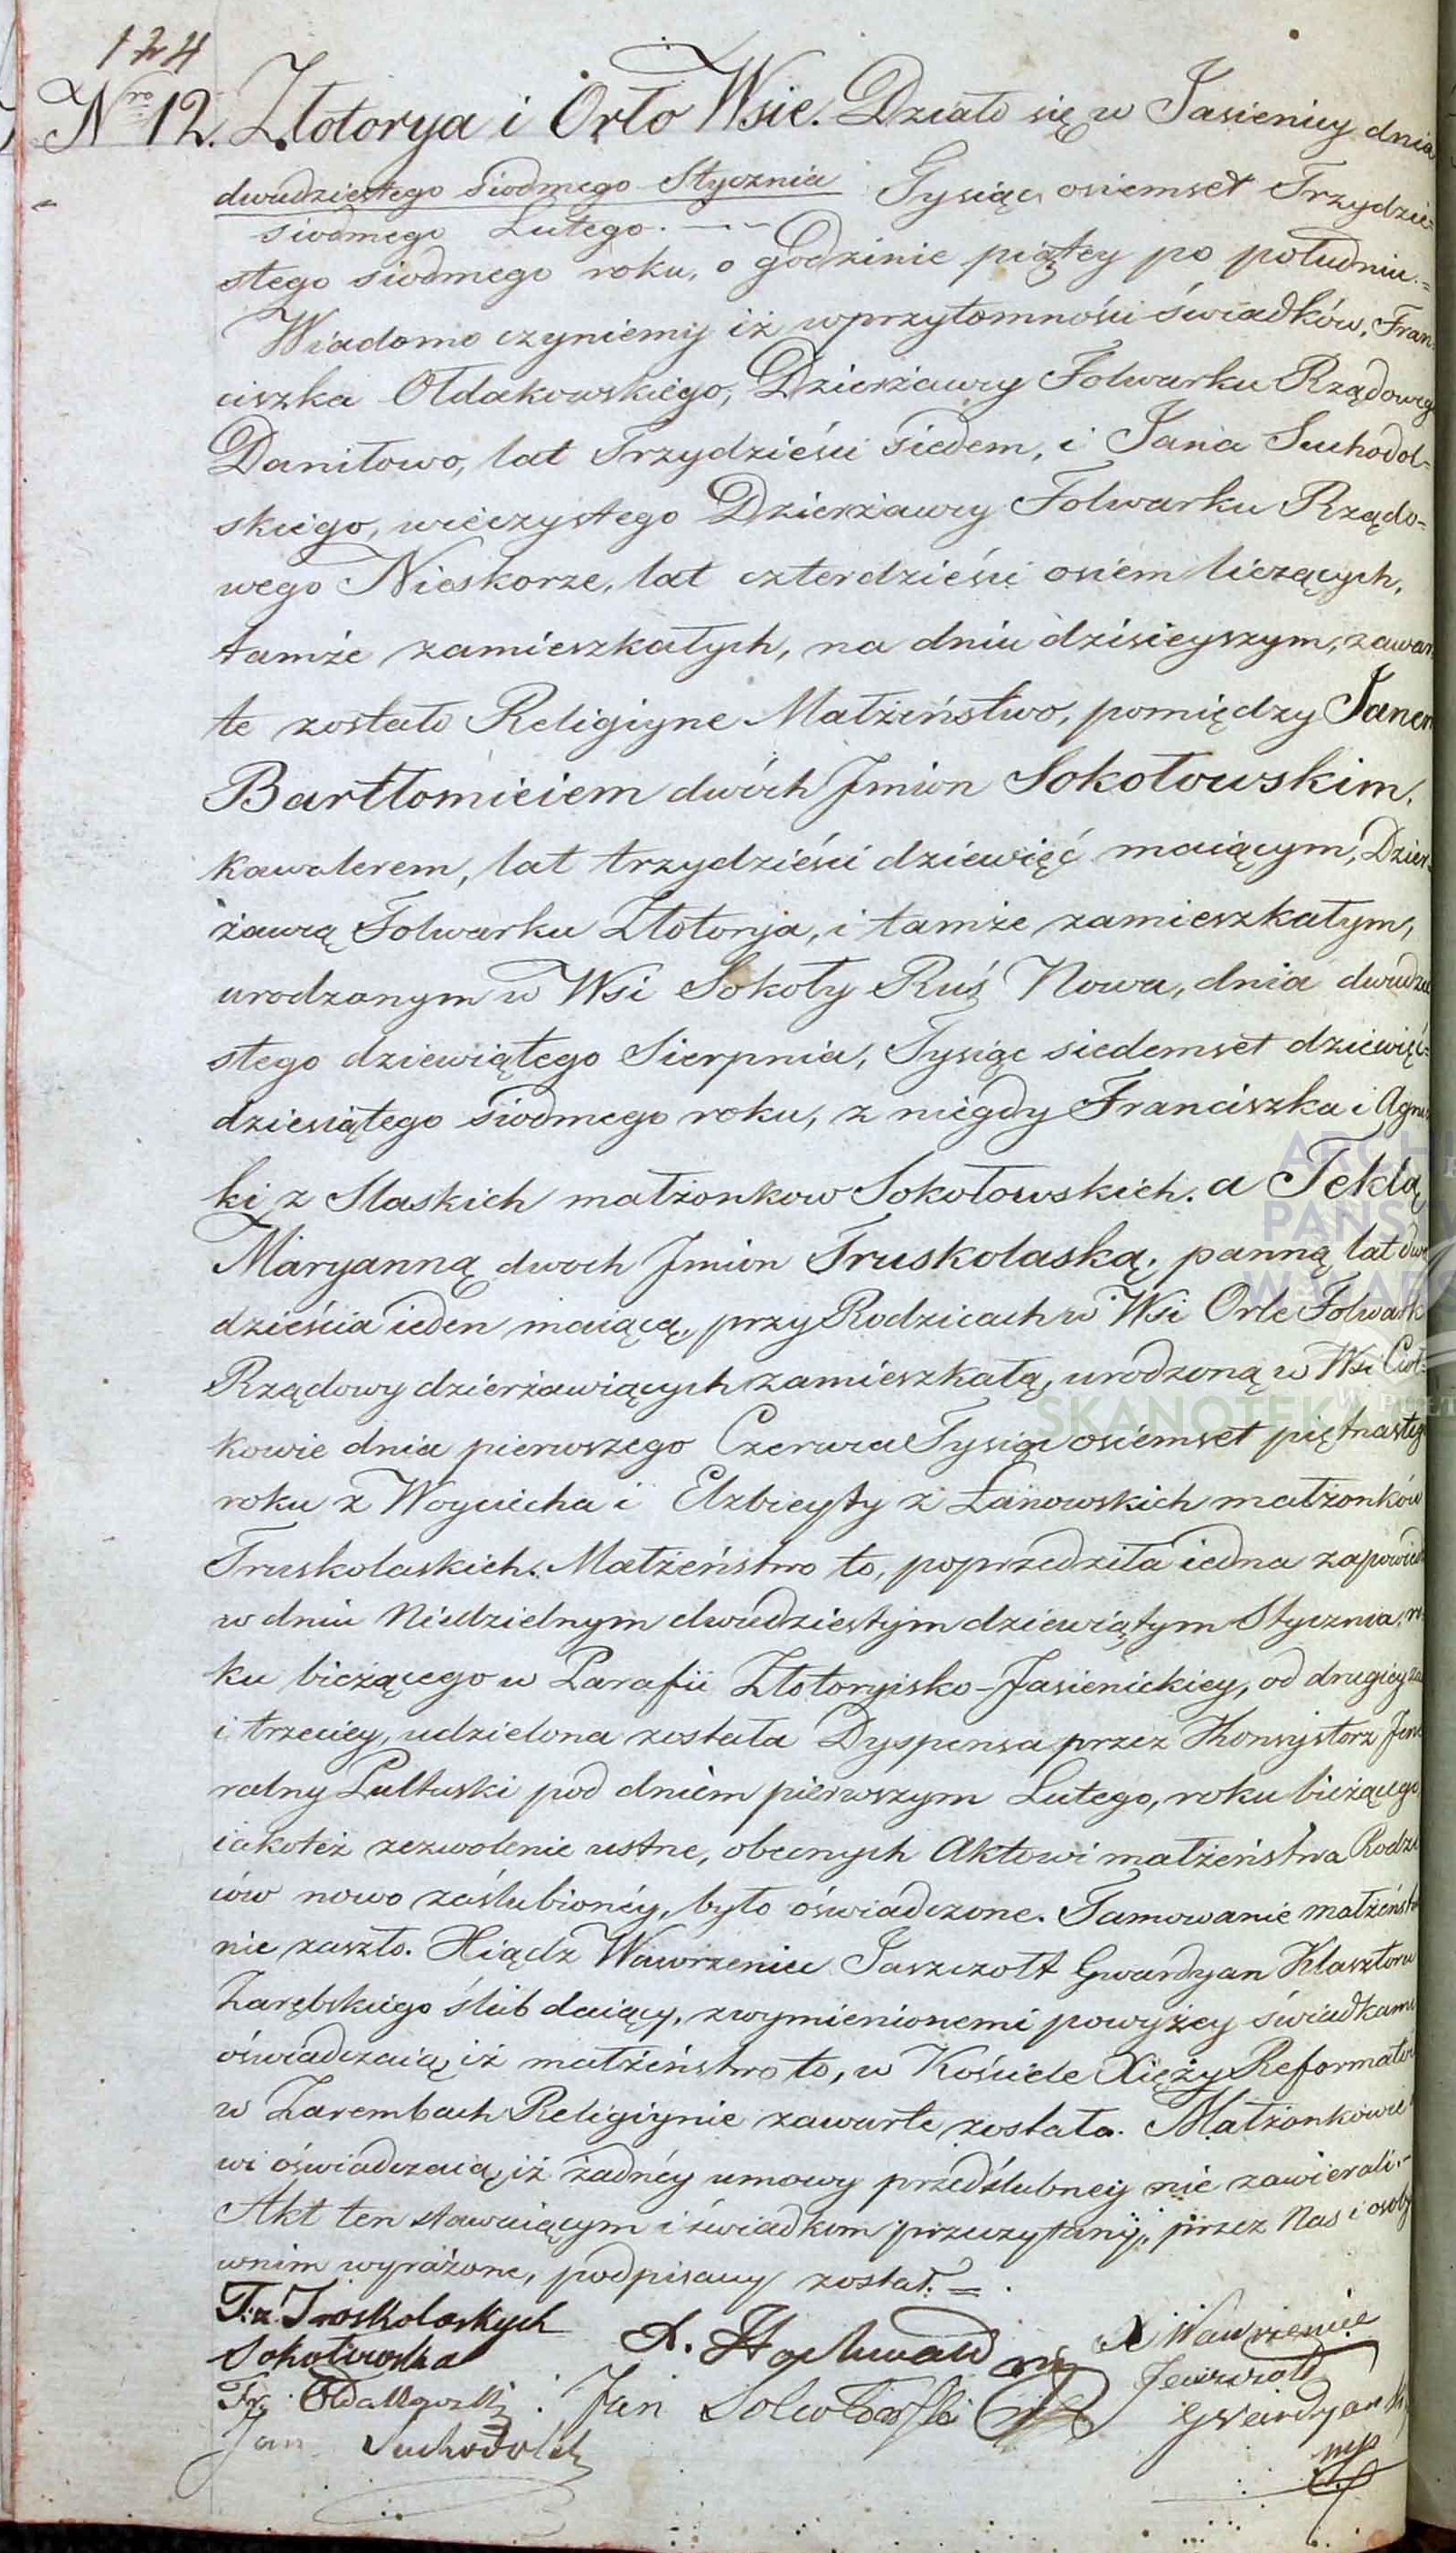 124
Nro 12. Złotorya i Orło Wsie. Działo się w Jasienicy dnia
dwudziestego siodmego Stycznia Tysiąc osiemset Trzydzie=
siodmego Lutego.
stego siodmego roku, o godzinie piątey po południu.=
Wiadomo czyniemy iż wprzytomności świadków, Fran=
ciszka Ołdakowskiego, Dzierżawcy Folwarku Rządowego
Daniłowo, lat Trzydzieści siedem, i Jana Suchodol=
skiego, wieczystego Dzierżawcy Folwarku Rządo=
wego Nieskorze, lat czterdzieści osiem liczących,
tamże zamieszkałych, na dniu dzisieyszym, zawar
te zostało Religiyne Małżeństwo, pomiędzy Janem
Bartłomieiem dwóch Jmion Sokołowskim.
kawalerem, lat trzydzieści dziewięć maiącym, Dzier=
żawcą Folwarku Złotorya, i tamże zamieszkałym,
urodzonym w Wsi Sokoły Ruś Nowa, dnia dwudzie
stego dziewiątego Sierpnia, Tysiąc siedemset dziewięć=
dziesiątego siodmego roku, z niegdy Franciszka i Agnis
ki z Slaskich małżonkow Sokołowskich. a Teklą
Maryanną dwoch Jmion Truskolaską, panną lat dwa
dzieścia ieden maiącą, przy Rodzicach w Wsi Orle Folwark
Rządowy dzierżawiących zamieszkałą, urodzoną w Wsi Cioł=
kowie dnia pierwszego Czerwca Tysiąc osiemset piętnastego
roku z Woyciecha i Elzbiety z Łanowskich małżonków
Truskolaskich. Małżeństwo to, poprzedziła iedna zapowiedź
w dniu Niedzielnym dwudziestym dziewiątym Stycznia, ro
ku bieżącego w Parafii Złotoryisko-Jasienickiey, od drugiey zaś
i trzeciey, udzielona została Dyspensa przez Konsystorz Jene
ralny Pułtuski pod dniem pierwszym Lutego, roku bieżącego,
iakoteż zezwolenie ustne, obecnych Aktowi małżeństwa Rodzi
ców nowo zaślubionéy, było oświadczone. Tamowanie małżeństwa
nie zaszło. Xiądz Wawrzeniec Jaszczołt Gwardyan Klasztoru
Zarębskiego ślub daiący, zwymienionemi powyżey świadkami
oświadczaią, iż małżeństwo to, w Kościele Xięży Reformatow
w Zarembach Religiynie zawarte została. Małżonkowie
wi oświadczaią, iż żadnéy umowy przedślubney nie zawierali.-
Akt ten stawaiącym i świadkom przeczytany, przez Nas i osoby
wnim wyrażone, podpisany został. =
T: z Truskolaskych
Sokołowska
X. Wawrzeniec
Fr. Ołdakowski
Jan Sokołowski
Gwardyan
Jan Suchodolski
mp
ARCHI
PAŃSTW
W WARS
SKANOTEKA